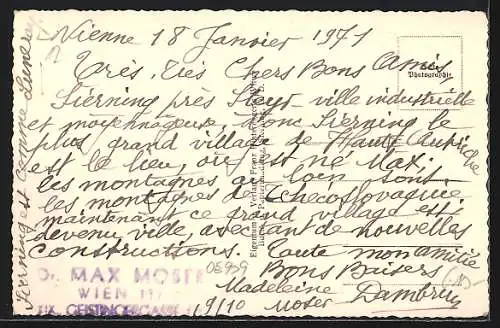 Vienne 18 Janvier 1971
Très, très Chers Bons Amis
Sierning près Steyr ville industrielle
et moyennageux, donc Sierning le
plus grand village de Haute Autriche
est le lieu, où est né Max.
les montagnes au loin sont
les montagnes de Thecoslovaquie
maintenant ce grand village est
devenu ville, avec tant de nouvelles
constructions. Toute mon amitié
Bons Baisers
Madeleine
Moser
9/10
Photographie
Dr. MAX MOSER
WIEN
GEISTINGERGASSE
Sierning est comme